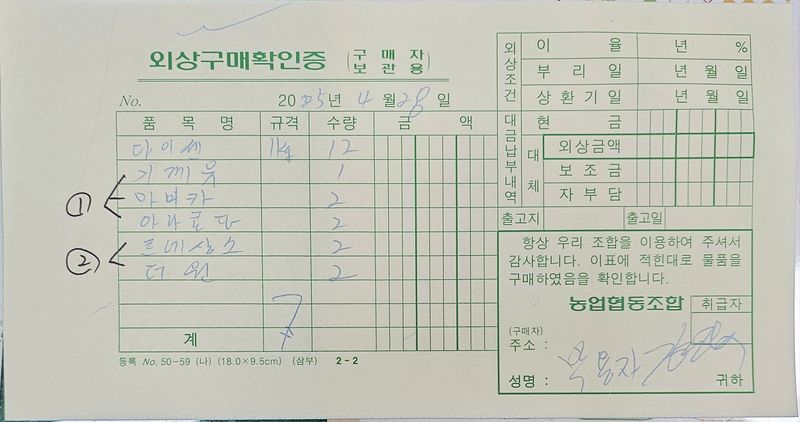 외상구매확인증 (구매자 보관용)
No. 2025년 4월 28일
품목명 규격 수량 금액
다이센 1kg 12
기끼유 1
① 아미카 2
아나로다 2
② 르네상스 2
더원 2
계
등록 No. 50-59 (나) (18.0×9.5cm) (삼부) 2-2
외상조건
이율 년 %
부리일 년 월 일
상환기일 년 월 일
대금납부내역
현금
대체
외상금액
보조금
자부담
출고지 출고일
항상 우리 조합을 이용하여 주셔서
감사합니다. 이표에 적힌대로 물품을
구매하였음을 확인합니다.
농업협동조합 취급자
(구매자)
주소 :
성명 : 귀하